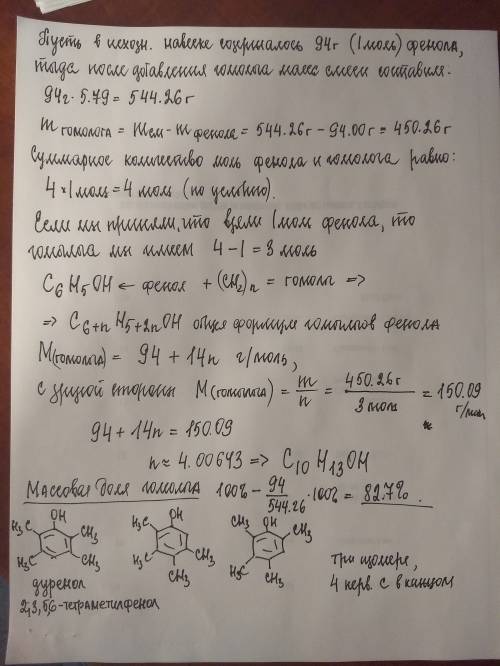 Пусть в исходн. навеске содержалось 94г (1 моль) фенола,
тогда после добавления гомолога масса смеси составила:
94г · 5.79 = 544.26г
m гомолога = mсм - m фенола = 544.26г - 94.00г = 450.26г
Суммарное количество моль фенола и гомолога равно:
4*1 моль = 4 моль (по условию).
Если мы приняли, что взяли 1 моль фенола, то
гомолога мы имеем 4 - 1 = 3 моль
C6H5OH ← фенол + (CH2)n = гомолог =>
=> C6+nH5+2nOH общая формула гомологов фенола
M(гомолога) = 94 + 14n г/моль,
с другой стороны M(гомолога) = m/n = 450.26г/3 моль = 150.09 г/моль
94 + 14n = 150.09
n ≈ 4.00643 => C10H13OH
Массовая доля гомолога 100% - 94/544.26 · 100% = 82.7%.
OH OH OH
H3C CH3 H3C H3C CH3
H3C CH3 H3C CH3 H3C
CH3 CH3
дуренол
2,3,5,6-тетраметилфенол
три изомера,
4 перв. C в каждом